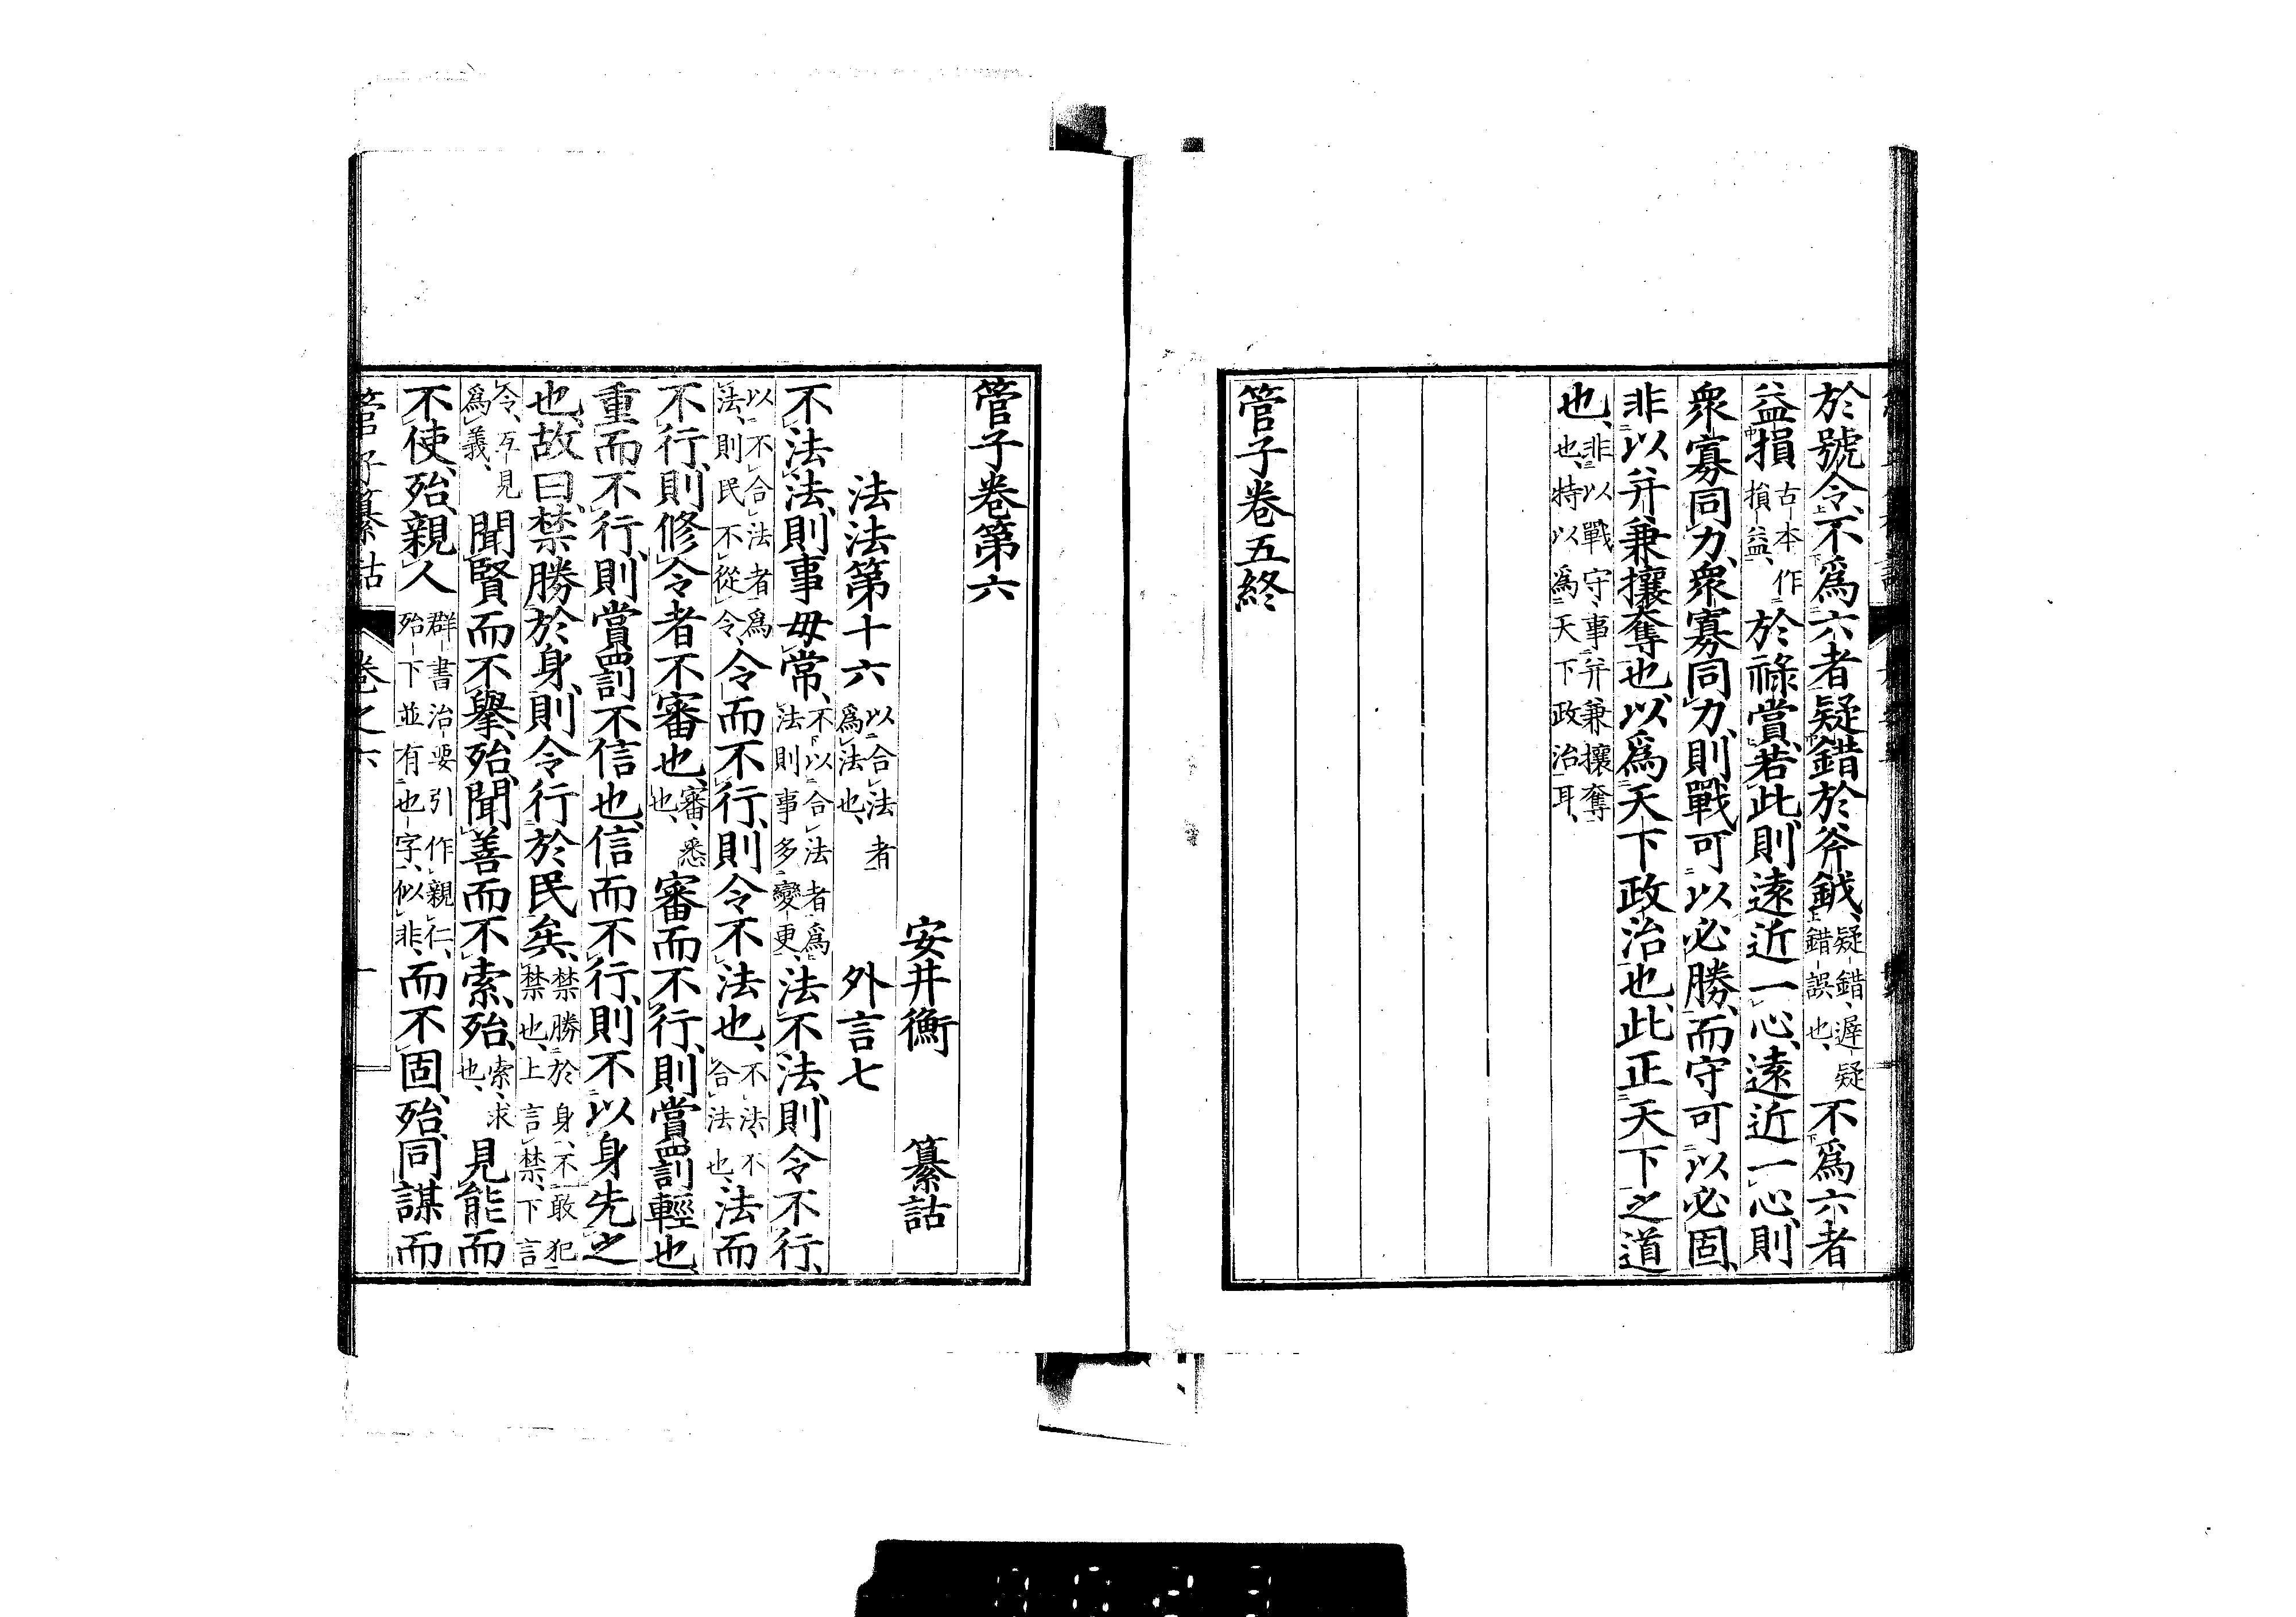 於號令、不爲六者疑錯於斧鉞、疑錯、遲疑錯誤也、不爲六者
益損古本作損益、於祿賞、若此則遠近一心、遠近一心、則
衆寡同力、衆寡同力、則戰可以必勝、而守可以必固、
非以幷兼攘奪也、以爲天下政治也、此正天下之道
也、非以戰守、事幷兼攘奪也、特以爲天下政治耳、
管子卷五終
管子卷第六
安井衡 纂詁
法法第十六以合法者爲法也、 外言七
不法法、則事毋常、不以合法者爲法則事多變更、法不法、則令不行、
以不合法者爲法、則民不從令、令而不行、則令不法也、不法、不合法也、法而
不行、則修令者不審也、審、悉也、審而不行、則賞罰輕也、
重而不行、則賞罰不信也、信而不行、則不以身先之
也、故曰、禁勝於身、則令行於民矣、禁勝於身、不敢犯禁也、上言禁、下言
令、互見爲義、聞賢而不擧、殆、聞善而不索、殆、索、求也、見能而
不使、殆、親人群書治要引作親仁、殆下並有也字、似非、而不固、殆、同謀而
管子纂詁 卷之六 一